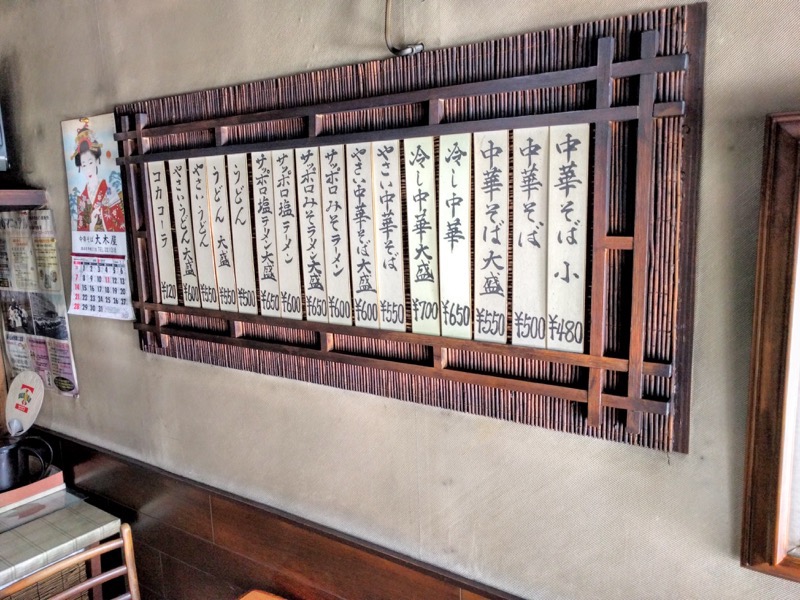 中華そば 小
¥480
中華そば
¥500
中華そば大盛
¥550
冷し中華
¥650
冷し中華大盛
¥700
やさい中華そば
¥550
やさい中華そば大盛
¥600
サッポロみそラメン
¥600
サッポロみそラメン大盛
¥650
サッポロ塩ラーメン
¥600
サッポロ塩ラーメン大盛
¥650
うどん
¥500
うどん 大盛
¥550
やさいうどん
¥550
やさいうどん大盛
¥600
コカコーラ
¥120
中華そば 大木屋